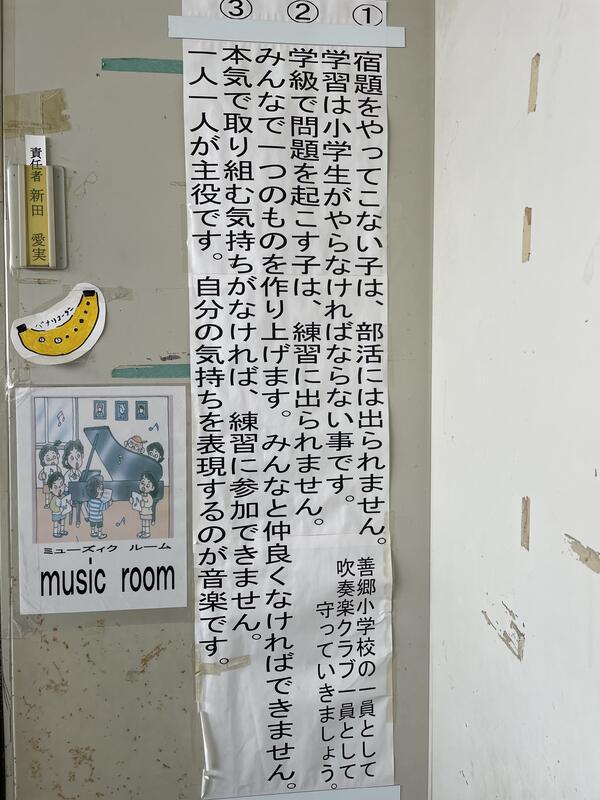 ① 宿題をやってこない子は、部活には出られません。
学習は小学生がやらなければならない事です。
② 学級で問題を起こす子は、練習に出られません。
みんなで一つのものを作り上げます。みんなと仲良くなければできません。
③ 本気で取り組む気持ちがなければ、練習に参加できません。
一人一人が主役です。自分の気持ちを表現するのが音楽です。
善郷小学校の一員として
吹奏楽クラブ一員として
守っていきましょう。
責任者 新田 愛実
ミューズィク ルーム
music room